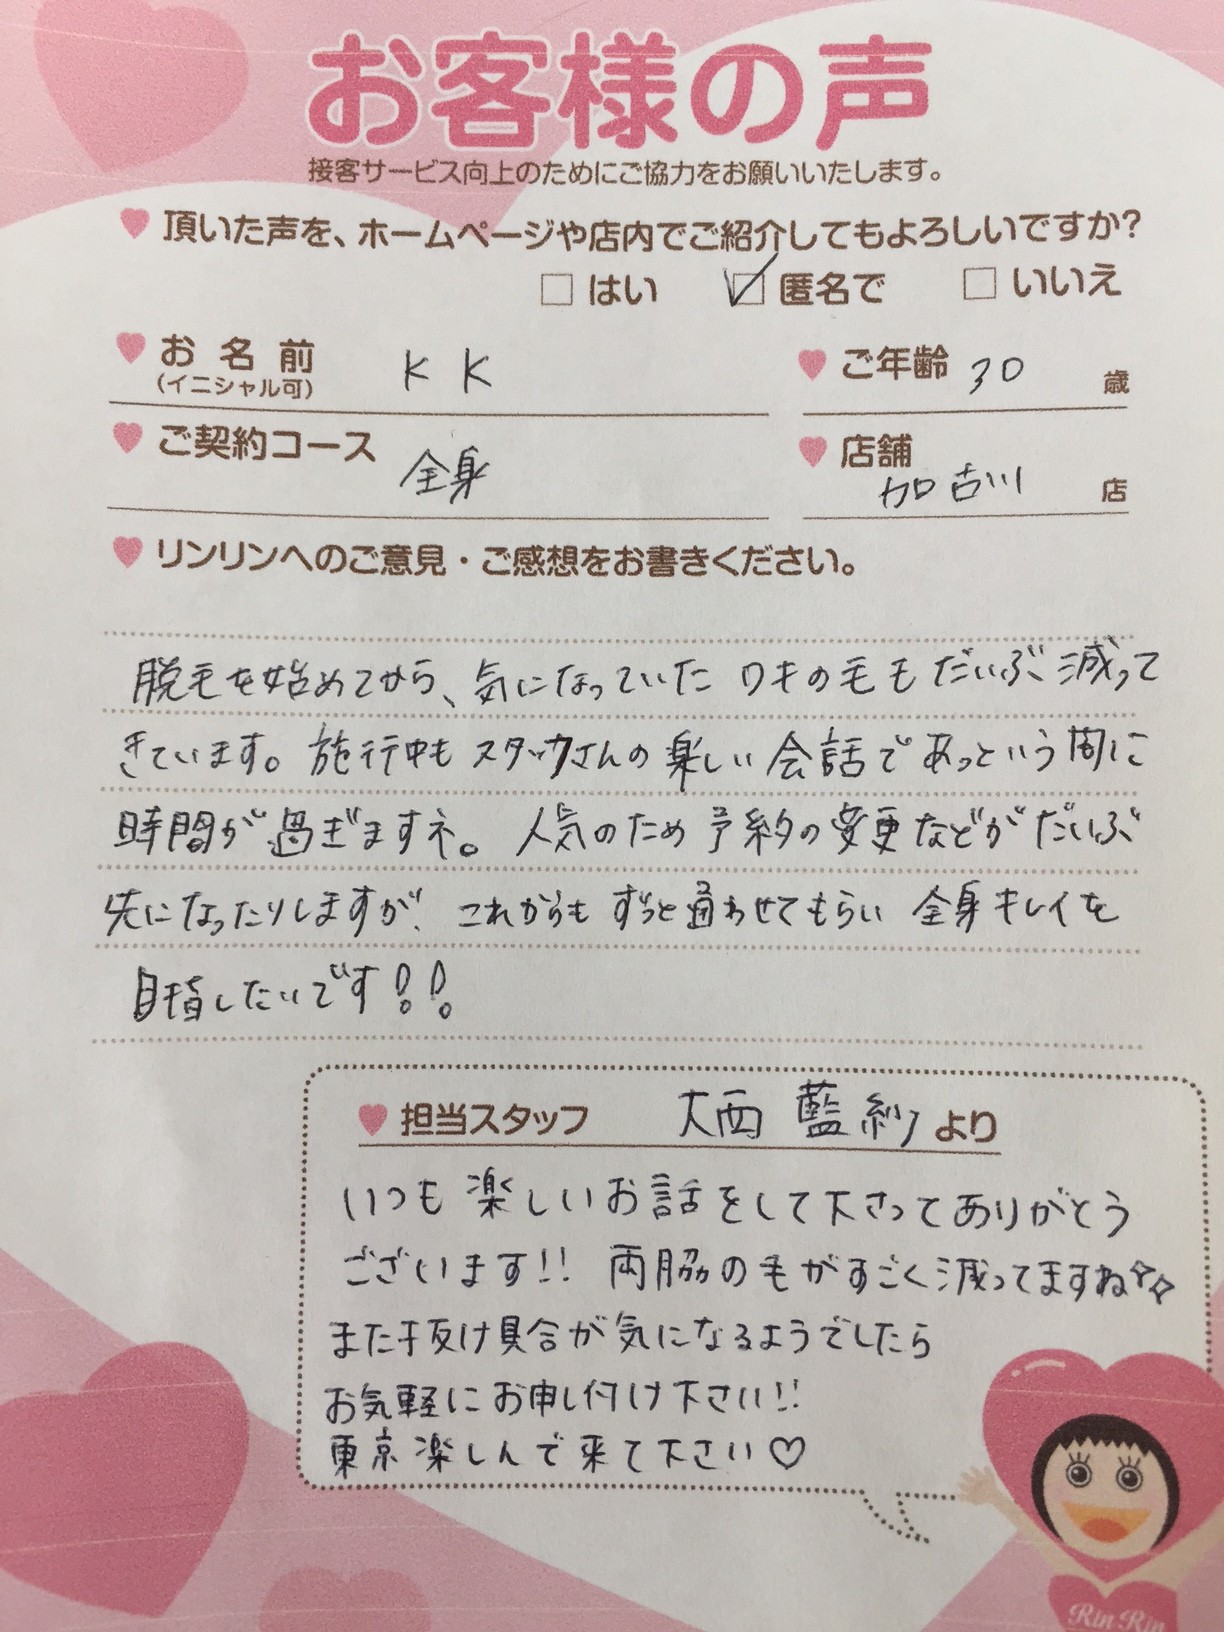 お客様の声
接客サービス向上のためにご協力をお願いいたします。
頂いた声を、ホームページや店内でご紹介してもよろしいですか?
□ はい ☑ 匿名で □ いいえ
お名前 K K ご年齢 30 歳
(イニシャル可)
ご契約コース 全身 店舗 加古川 店
リンリンへのご意見・ご感想をお書きください。
脱毛を始めてから、気になっていた ワキの毛も だいぶ 減って
きています。施行中も スタッフさんの 楽しい 会話で あっという間に
時間が 過ぎますネ。人気のため 予約の変更などが だいぶ
先になったりしますが、これからも ずっと通わせてもらい 全身キレイを
目指したいです!!
担当スタッフ 大西 藍紗 より
いつも楽しいお話をして下さってありがとう
ございます!! 両脇の毛がすごく減ってますね✧✧
また抜け具合が気になるようでしたら
お気軽にお申し付け下さい!!
東京楽しんで来て下さい♡
Rin Rin